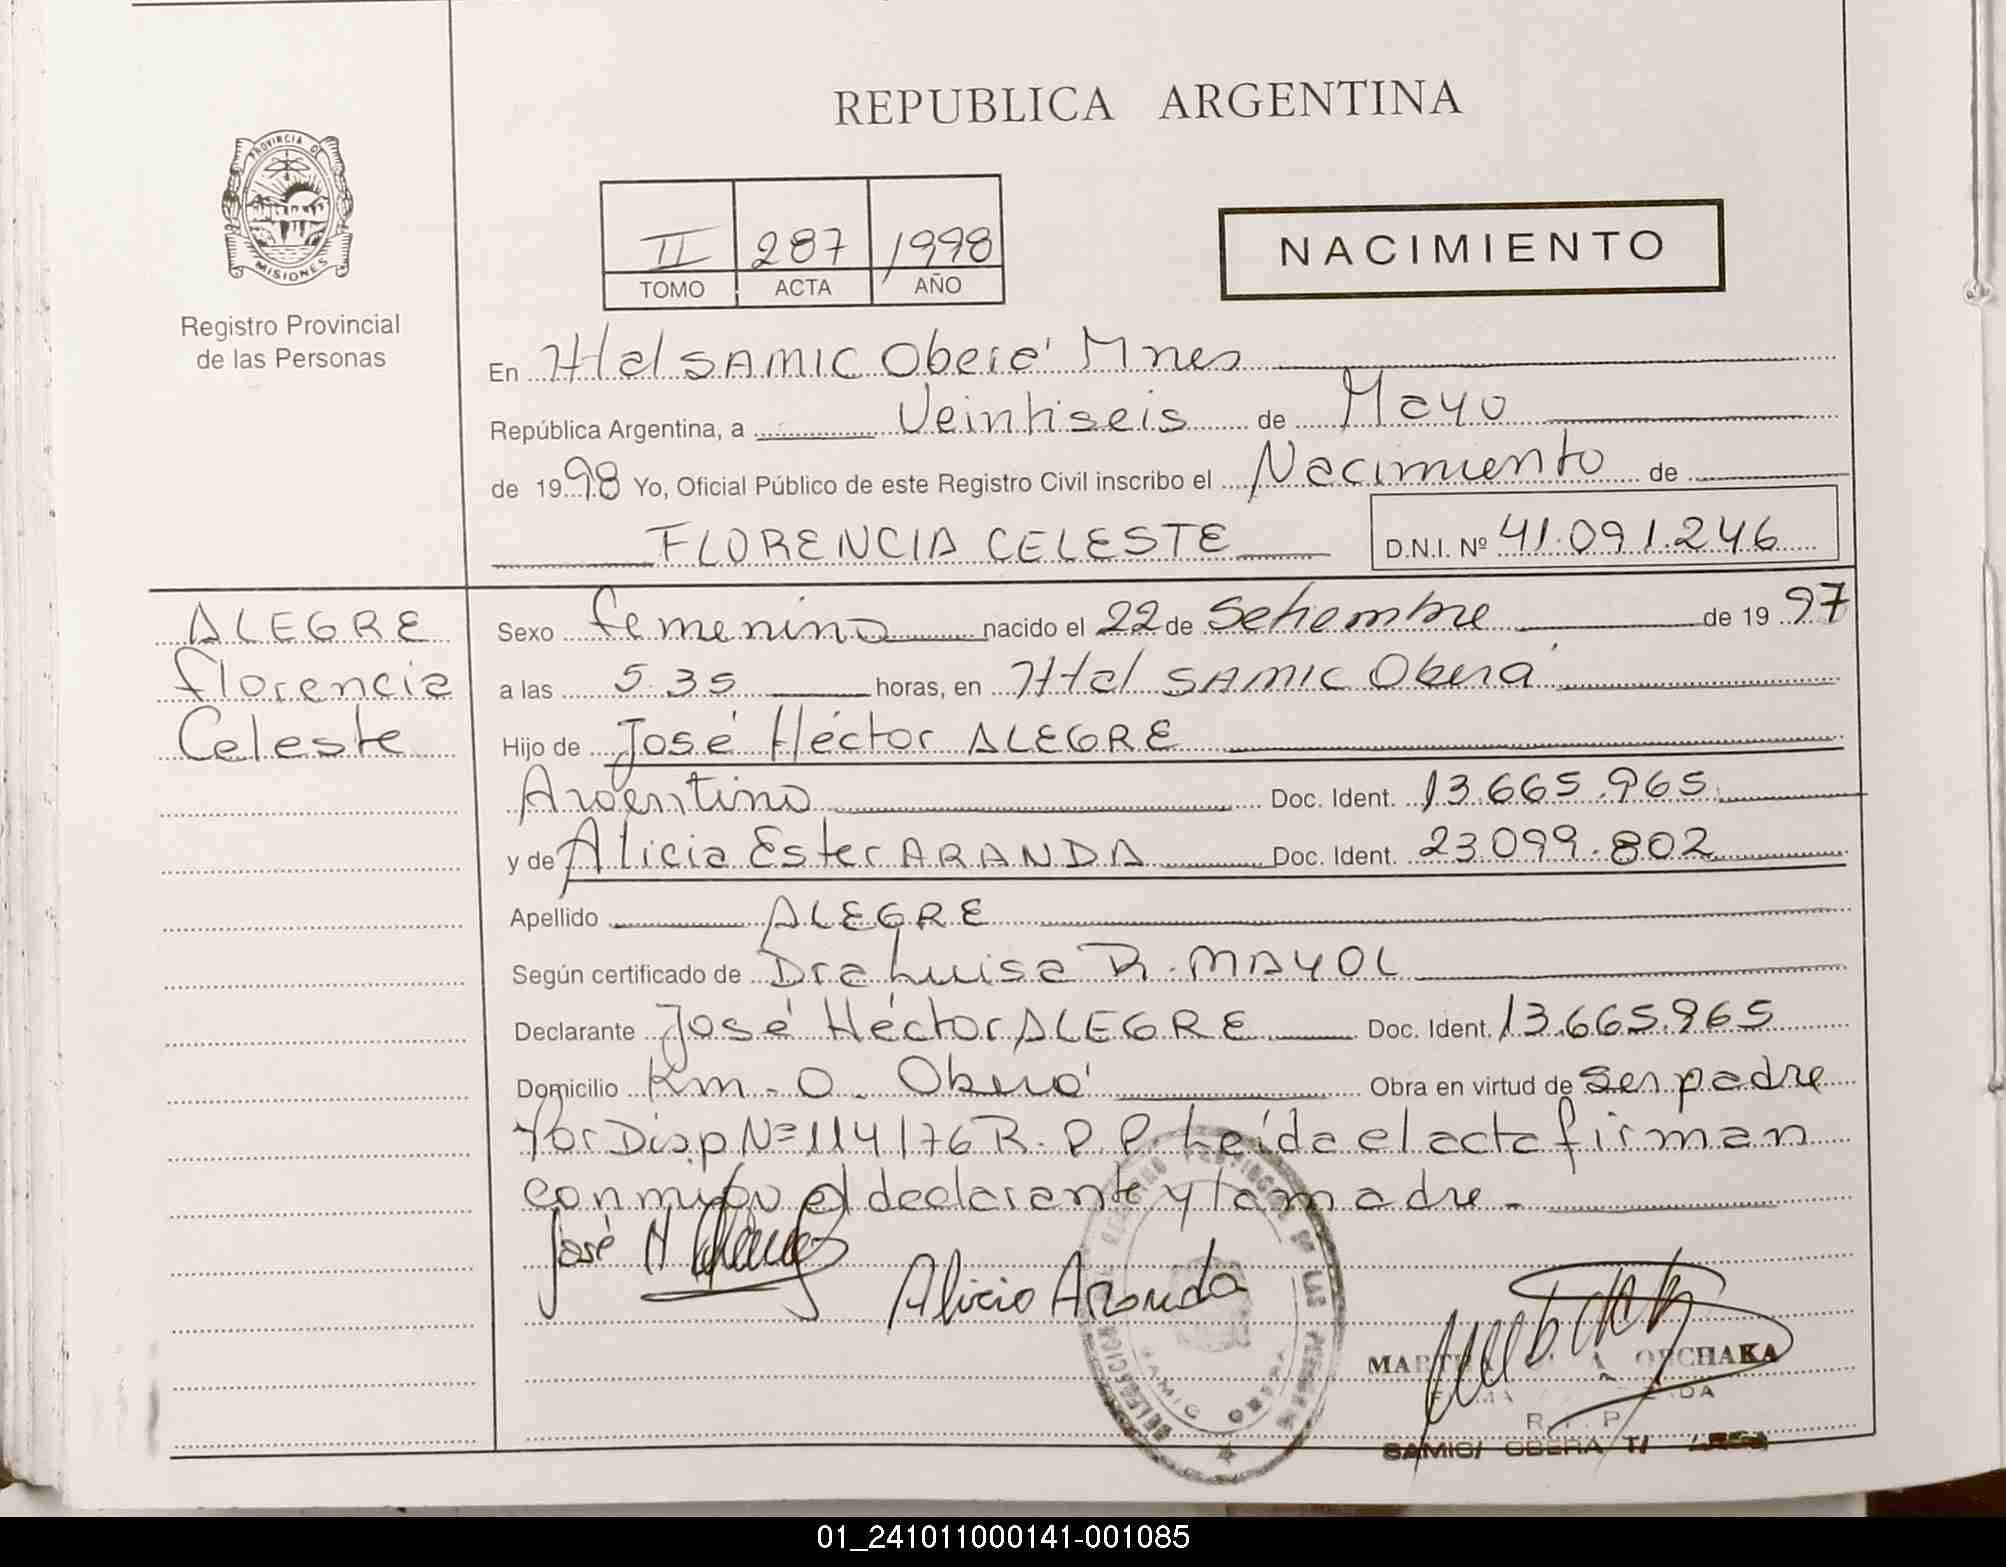 REPUBLICA ARGENTINA
PROVINCIA DE
MISIONES
Registro Provincial
de las Personas
II 287 1998
TOMO ACTA AÑO
NACIMIENTO
En Htal SAMIC Oberá Mnes
República Argentina, a Veintiseis de Mayo
de 1998 Yo, Oficial Público de este Registro Civil inscribo el Nacimiento de
FLORENCIA CELESTE D.N.I. Nº 41.091.246
ALEGRE
Florencia
Celeste
Sexo femenino nacido el 22 de Setiembre de 1997
a las 5.35 horas, en Htal SAMIC Oberá
Hijo de José Héctor ALEGRE
Argentino Doc. Ident. 13.665.965
y de Alicia Ester ARANDA Doc. Ident. 23.099.802
Apellido ALEGRE
Según certificado de Dra Luisa R. MAYOL
Declarante José Héctor ALEGRE Doc. Ident. 13.665.965
Domicilio Km. 0. Oberá Obra en virtud de ser padre
Por Disp Nº 114/76 R.P.P. Leída el acta firman
conmigo el declarante y la madre.
José H
Alicia Aranda
DELEGACION PROVINCIAL DE LAS PERSONAS
SAMIC OBERA
ORCHAKA
R.P.P
SAMIC/ OBERA
01_241011000141-001085